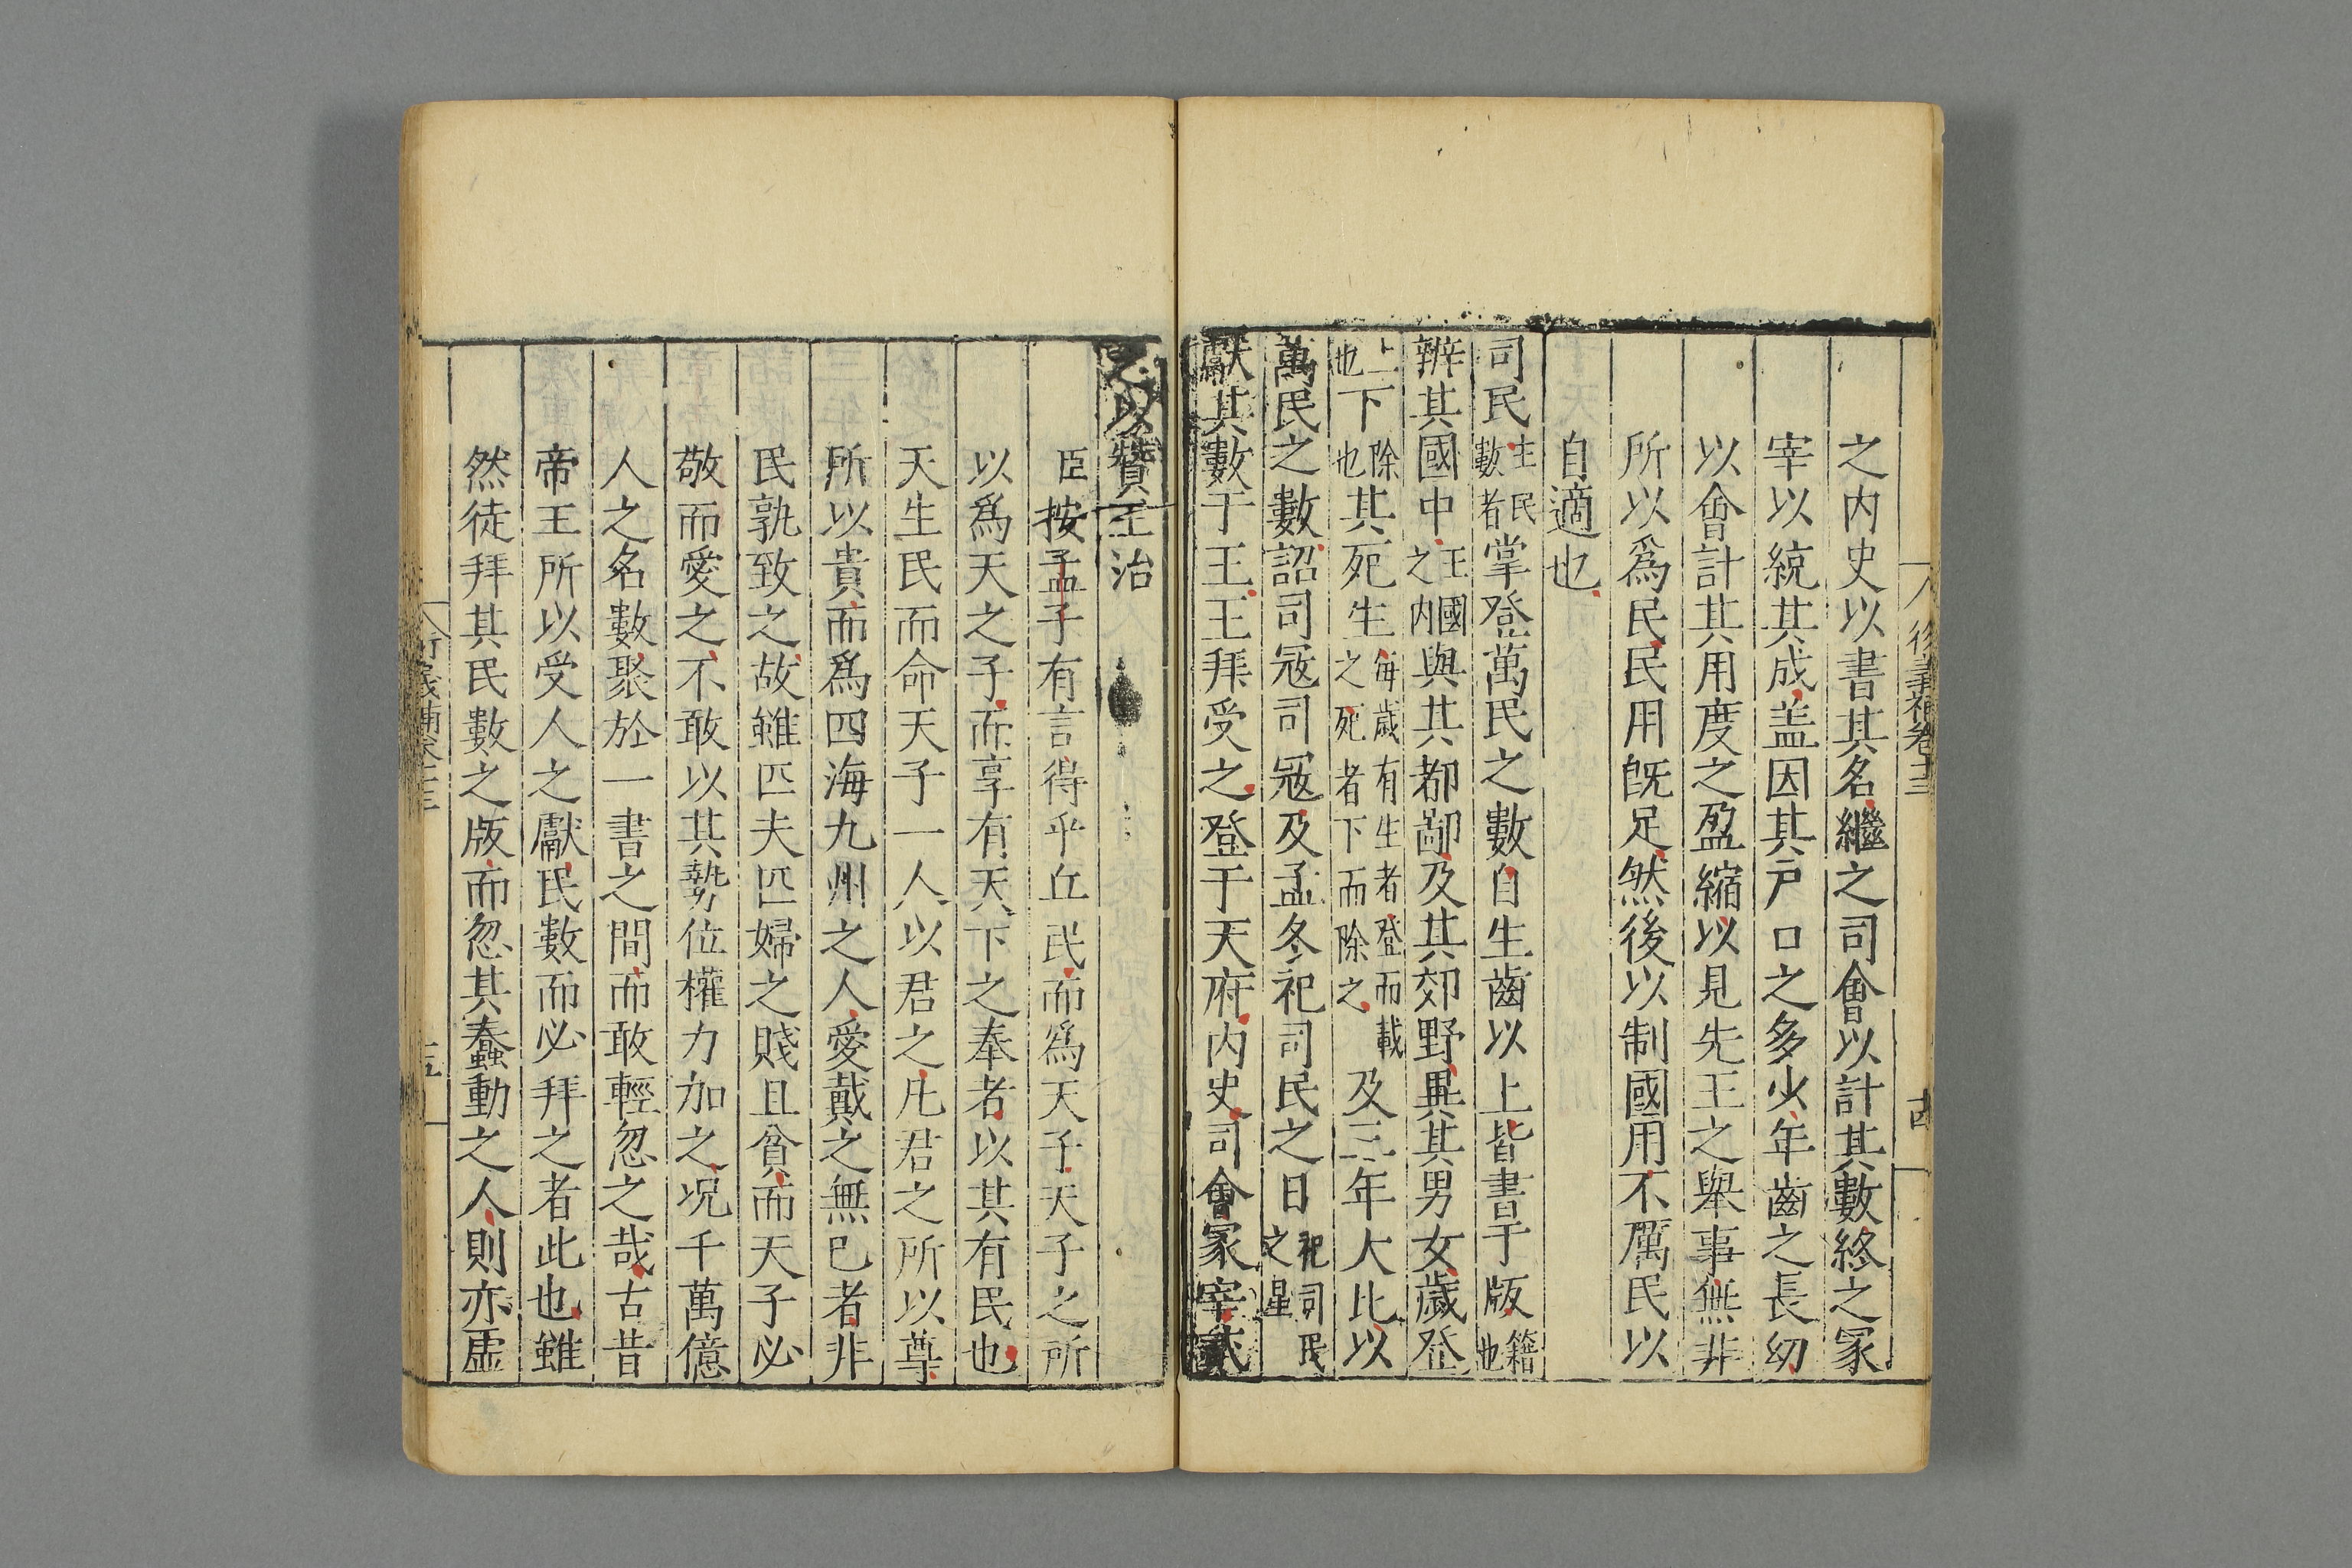 之内史以書其名繼之司會以計其數終之冢
宰以統其成盖因其戸口之多少年齒之長幼
以會計其用度之盈縮以見先王之舉事無非
所以爲民民用旣足然後以制國用不厲民以
自適也
司民主民數者掌登萬民之數自生齒以上皆書于版籍也
辨其國中王國之内與其都鄙及其郊野異其男女歲登
上也下除也其死生每歲有生者登而載之死者下而除之及三年大比以
萬民之數詔司寇司寇及孟冬祀司民之日祀司民之星
獻其數于王王拜受之登于天府内史司會冢宰貳
之以贊王治
臣按孟子有言得乎丘民而爲天子天子之所
以爲天之子而享有天下之奉者以其有民也
天生民而命天子一人以君之凡君之所以尊
所以貴而爲四海九州之人愛戴之無已者非
民孰致之故雖匹夫匹婦之賤且貧而天子必
敬而愛之不敢以其勢位權力加之况千萬億
人之名數聚於一書之間而敢輕忽之哉古昔
帝王所以受人之獻民數而必拜之者此也雖
然徒拜其民數之版而忽其蠢動之人則亦虛